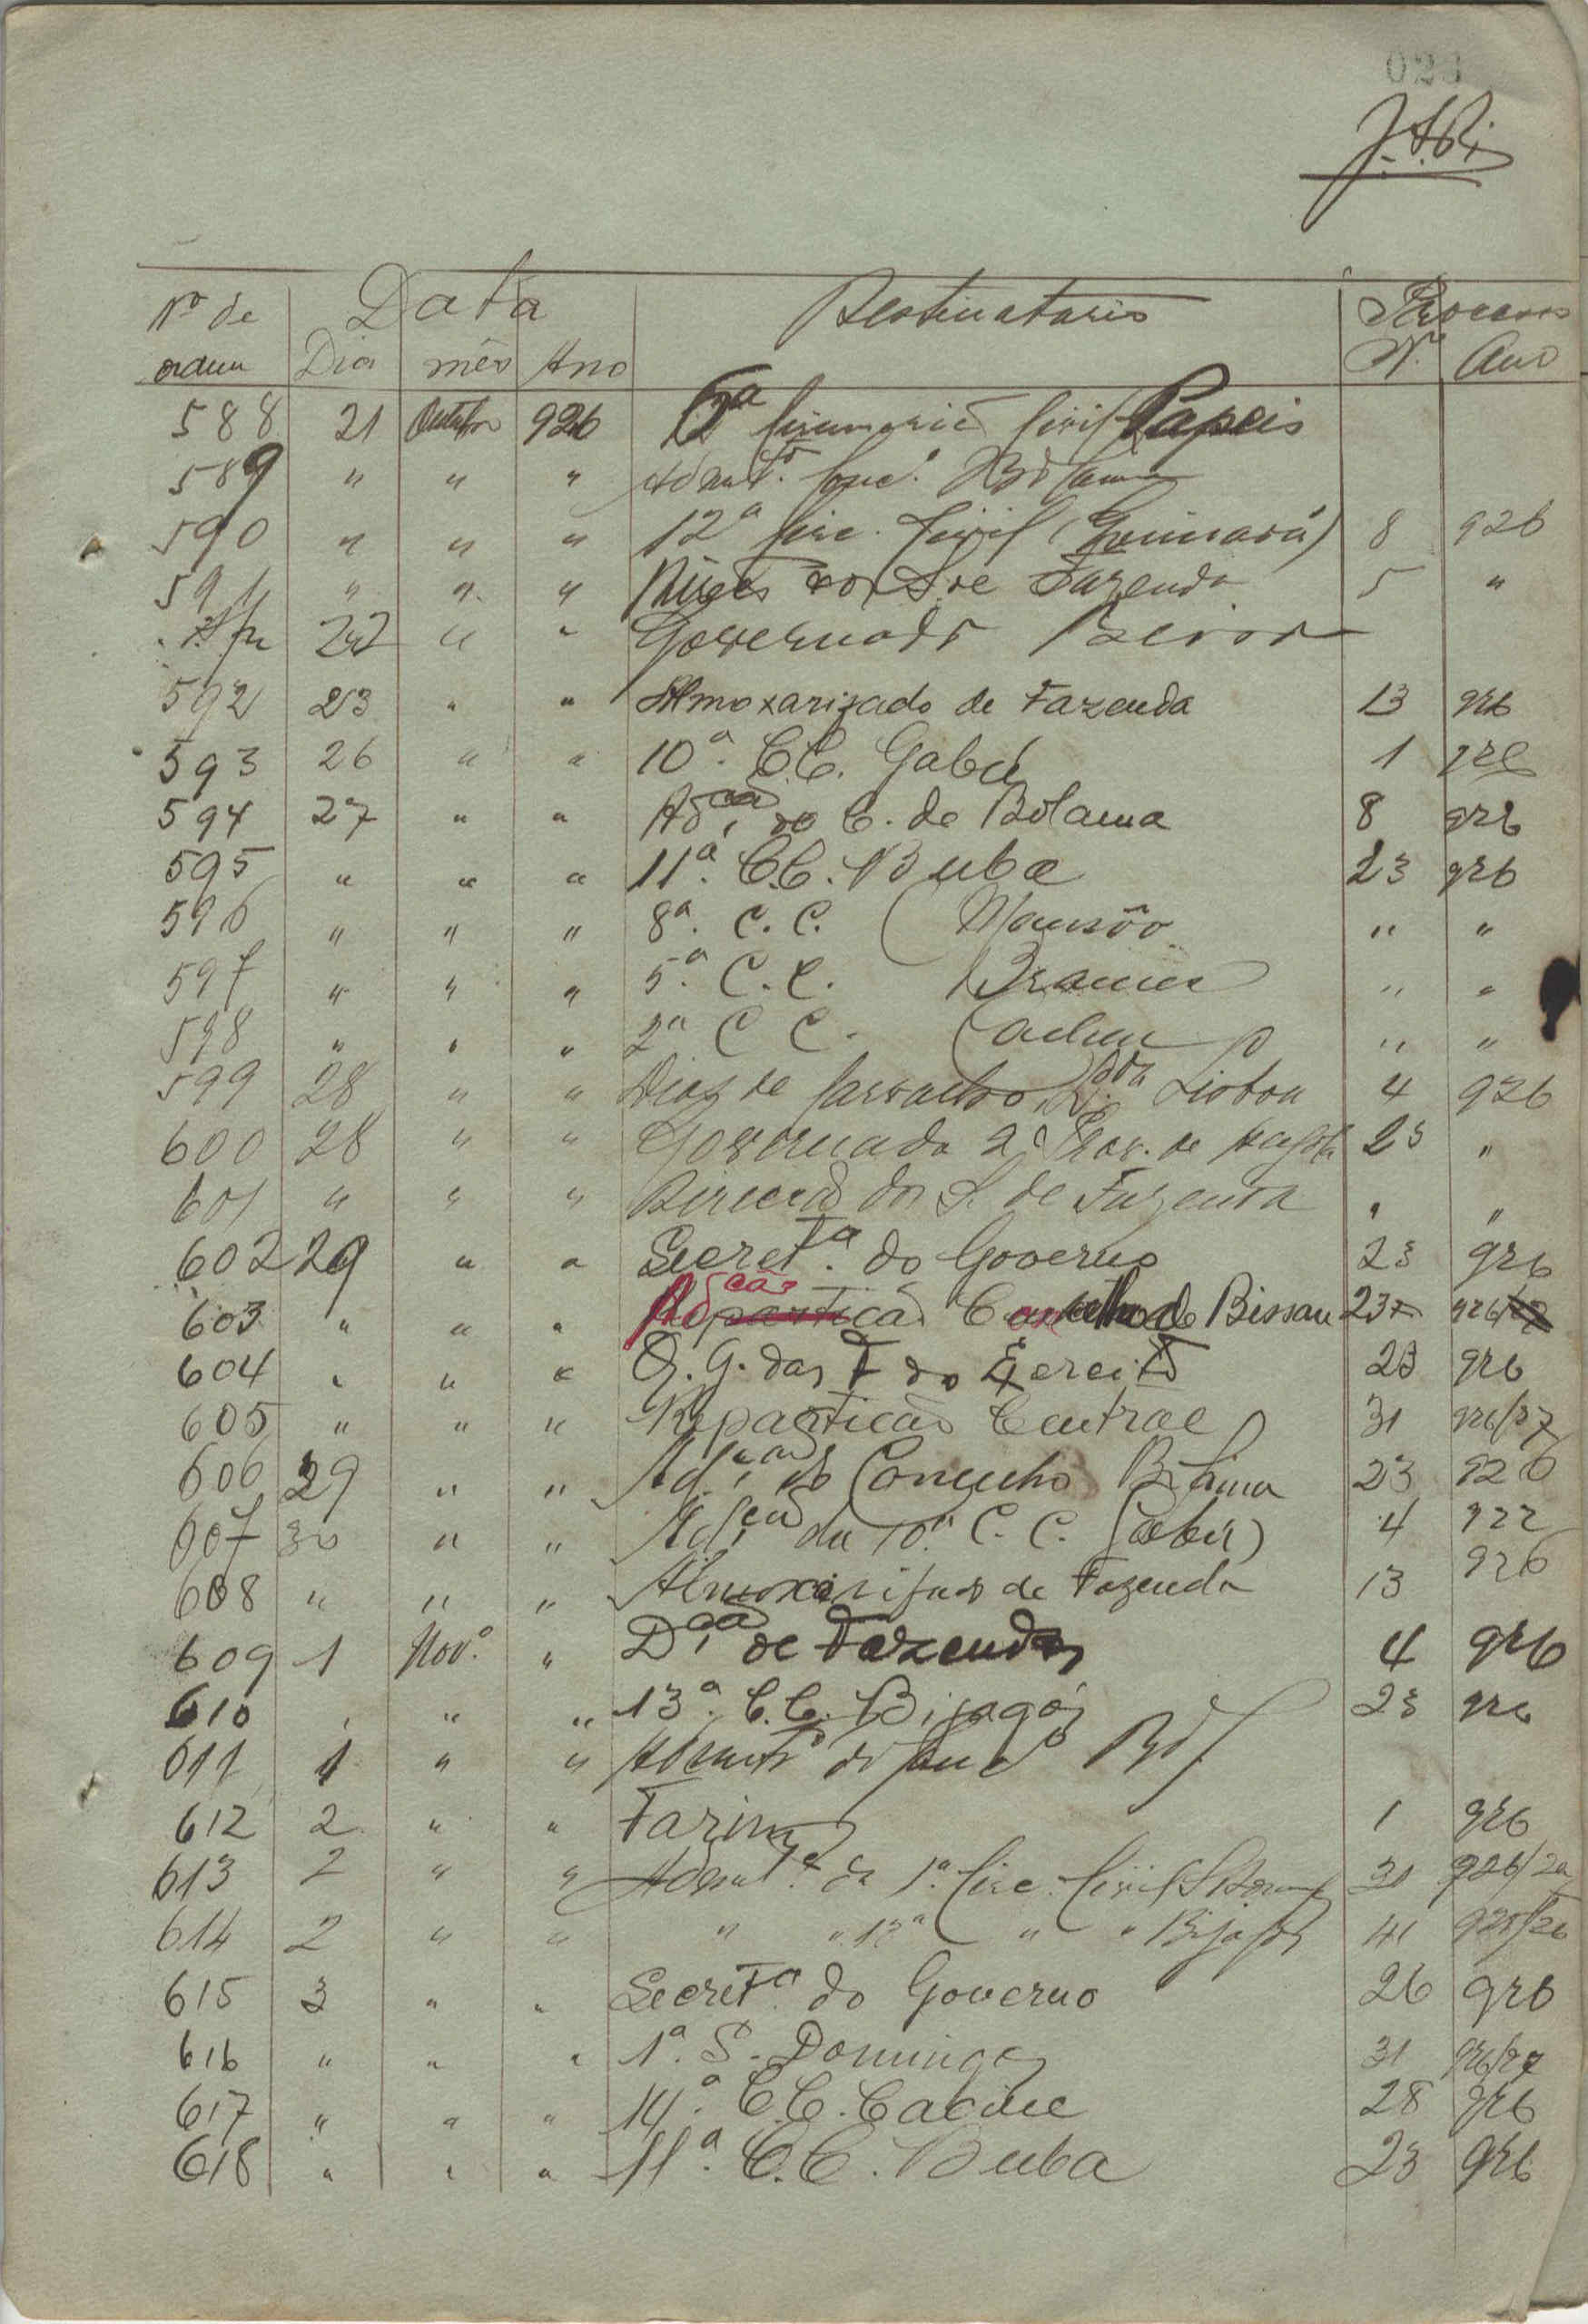 Nº de Data Destinatario Processo
ordem Dia mês Ano Nº Ano
588 21 Outubro 926 Civil Papeis
589 " " " Admt.or Conc.º Bolama
590 " " " 12ª Circ. Civil (Quinará) 8 926
591 " " " Fazenda 5 "
22 " " Governador
592 23 " " Almoxarifado de Fazenda 13 926
593 26 " " 10ª. C.C. Gabú 1 926
594 27 " " Ad.cão do C. de Bolama 8 926
595 " " " 11ª. C.C. Buba 23 926
596 " " " 8ª. C. C. (Mansôa " "
597 " " " 5ª. C. C. Brames " "
598 " " " 2ª C C. Cacheu " "
599 28 " " Dias de Carvalho Lisboa 4 926
600 28 " " Governador 23 "
601 " " " Direcção dos S. de Fazenda " "
602 29 " " Secret.ª do Governo 23 926
603 " " " Ad.cão Concelho de Bissau 23 926
604 " " " Q. G. das F do Exercito 23 926
605 " " " Repartição Central 31 926/27
606 29 " " Ad.cão do Concelho Bolama 23 926
607 30 " " Ad.cão da 10.ª C. C. (Gabú) 4 922
608 " " " Almoxarifado de Fazenda 13 926
609 1 Nov.º " D.cão de Fazenda 4 926
610 " " " 13ª. C.C. Bijagós 23 926
611 1 " " Admt.or do Conc.º Bol.
612 2 " " Farim 1 926
613 2 " " Admt.or da 1ª. Circ. Civil 31 926/27
614 2 " " " " 13ª " " Bijagós 41 925/26
615 3 " " Secret.ª do Governo 26 926
616 " " " 1ª. S. Domingos 31 926/27
617 " " " 14.ª C.C. Cacine 28 926
618 " " " 11.ª C.C. Buba 23 926